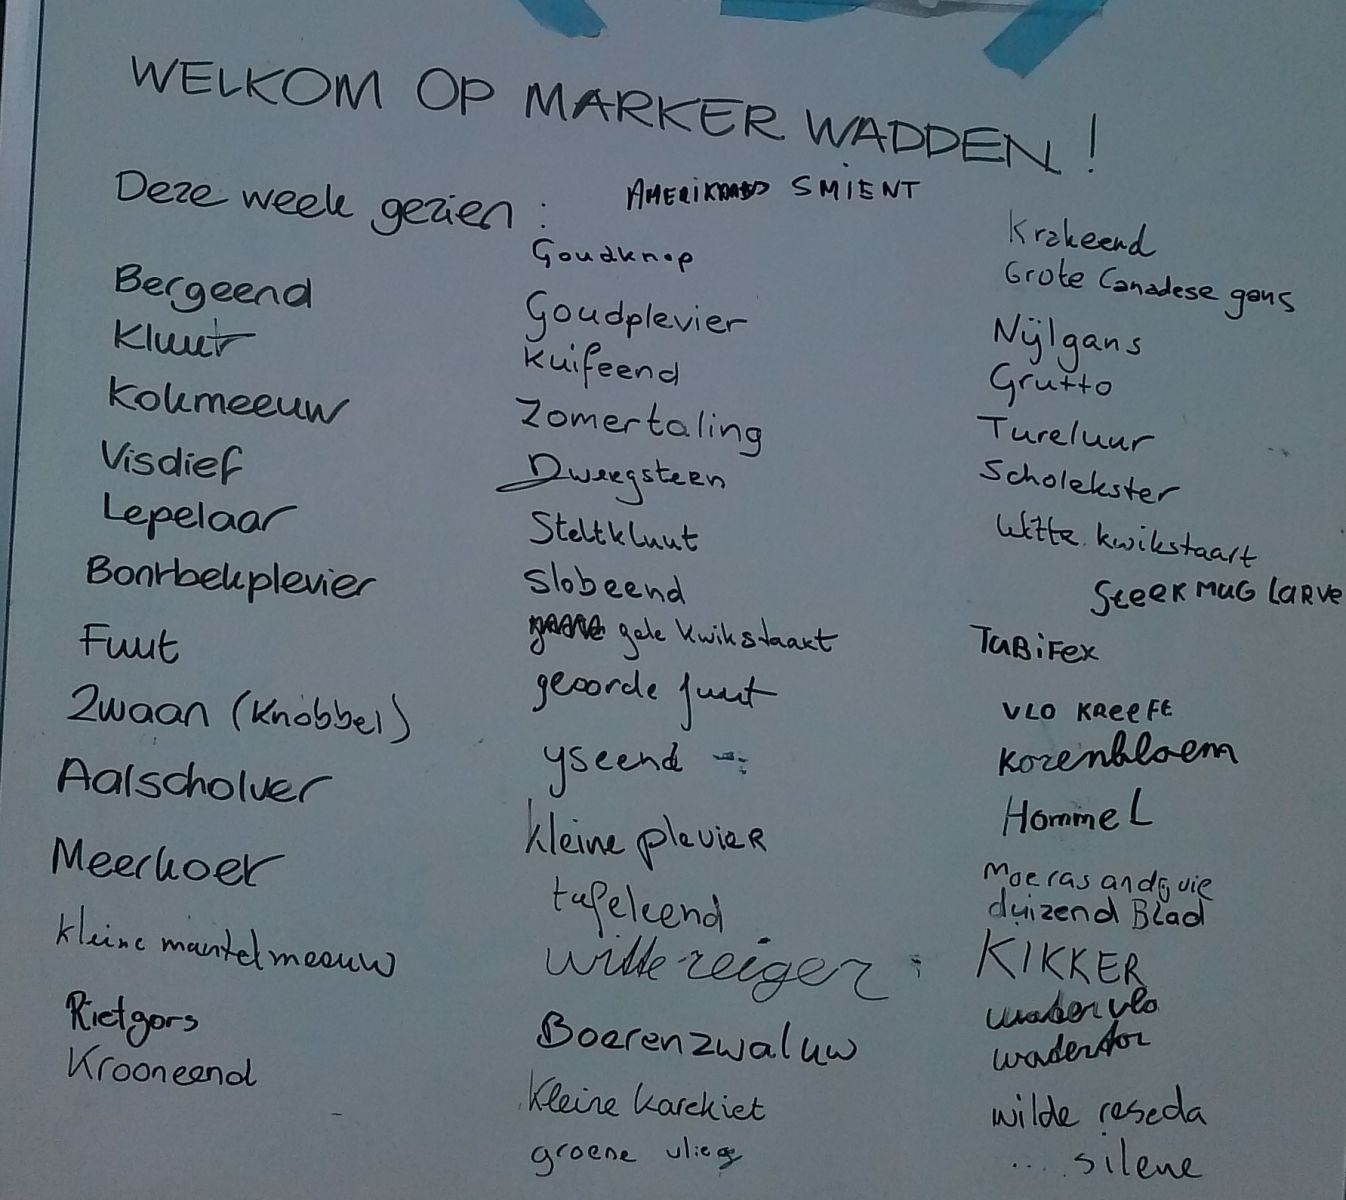 WELKOM OP MARKER WADDEN!
Deze week gezien:
Bergeend
Kluut
Kokmeeuw
Visdief
Lepelaar
Bontbekplevier
Fuut
Zwaan (Knobbel)
Aalscholver
Meerkoet
kleine mantelmeeuw
Rietgors
Krooneend
SMIENT
Goudknop
Goudplevier
Kuifeend
Zomertaling
Dwergsteen
Steltkluut
Slobeend
gele kwikstaart
geoorde fuut
yseend
kleine plevier
tafeleend
witte reiger
Boerenzwaluw
Kleine karekiet
groene vlieg
Krakeend
Grote Canadese gans
Nijlgans
Grutto
Tureluur
Scholekster
Witte kwikstaart
Steekmug larve
TuBiFex
VLO KREEFT
korenbloem
Hommel
Moerasandijvie
duizend Blad
KIKKER
watervlo
watertor
wilde reseda
.... silene